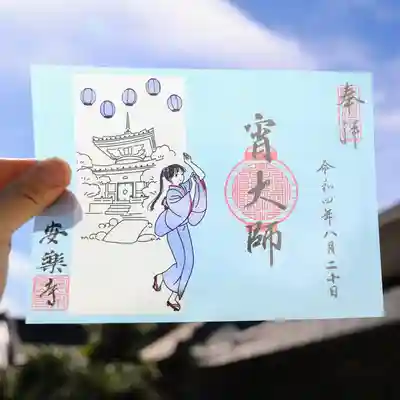 奉拝
令和四年八月二十日
宵大師
安樂寺